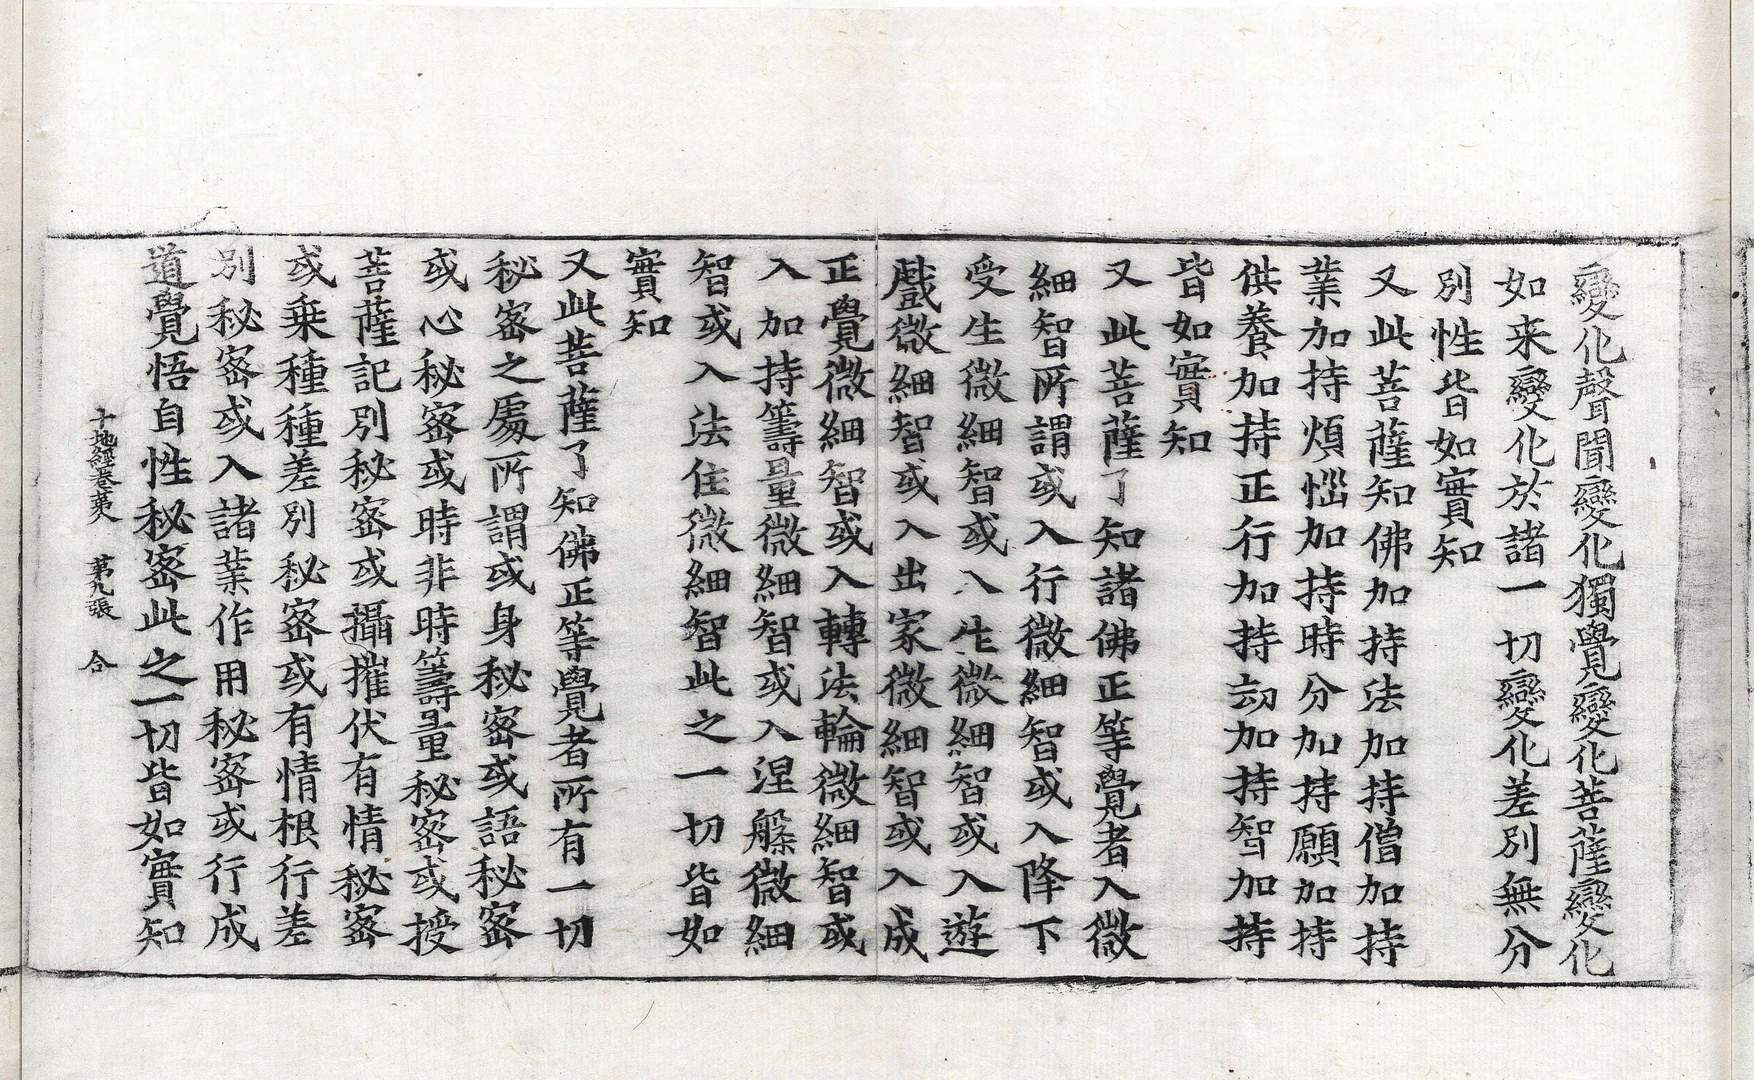 變化聲聞變化獨覺變化菩薩變化
如来變化於諸一切變化差別無分
別性皆如實知
又此菩薩知佛加持法加持僧加持
業加持煩惱加持時分加持願加持
供養加持正行加持劫加持智加持
皆如實知
又此菩薩了知諸佛正等覺者入微
細智所謂或入行微細智或入降下
受生微細智或入生微細智或入遊
戲微細智或入出家微細智或入成
正覺微細智或入轉法輪微細智或
入加持籌量微細智或入涅槃微細
智或入法住微細智此之一切皆如
實知
又此菩薩了知佛正等覺者所有一切
秘密之處所謂或身秘密或語秘密
或心秘密或時非時籌量秘密或授
菩薩記別秘密或攝摧伏有情秘密
或乗種種差別秘密或有情根行差
別秘密或入諸業作用秘密或行成
道覺悟自性秘密此之一切皆如實知
十地經卷第八 第九張 合